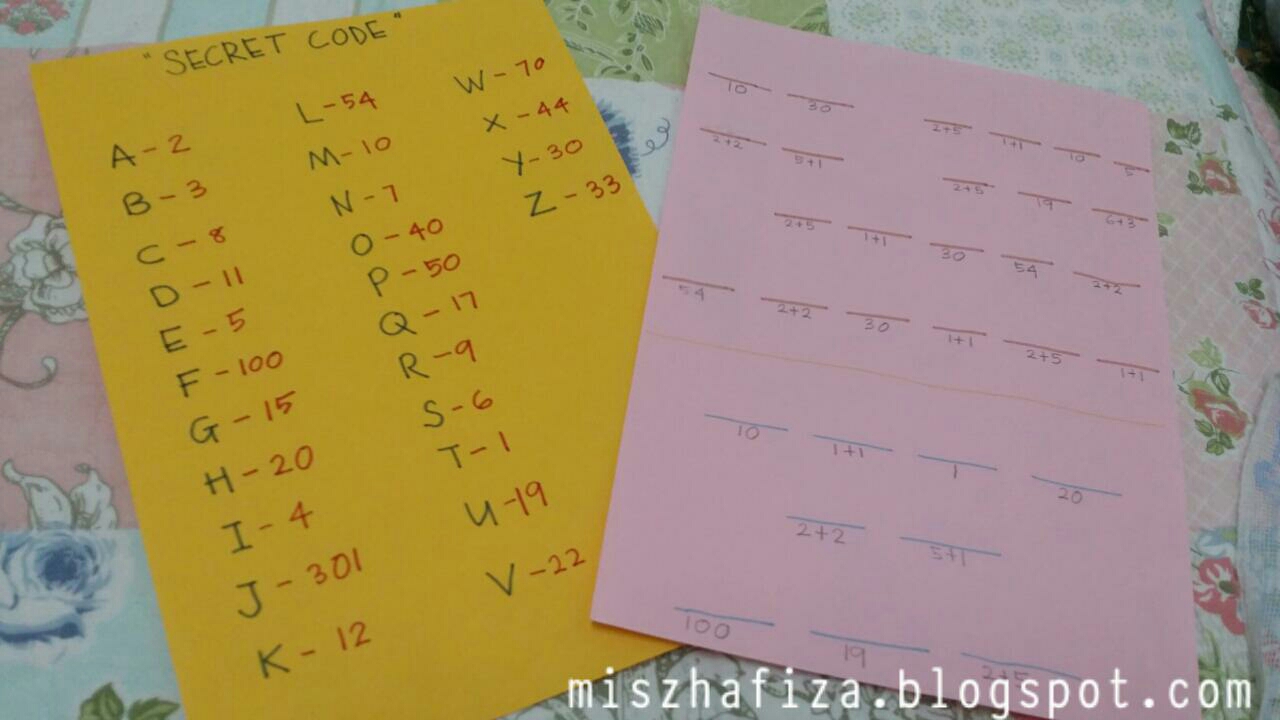 "SECRET CODE"
A - 2
B - 3
C - 8
D - 11
E - 5
F - 100
G - 15
H - 20
I - 4
J - 301
K - 12
L - 54
M - 10
N - 7
O - 40
P - 50
Q - 17
R - 9
S - 6
T - 1
U - 19
V - 22
W - 70
X - 44
Y - 30
Z - 33
10 30 2+5 1+1 10 5
2+2 5+1 2+5 19 6+3
2+5 1+1 30 54 2+2
54 2+2 30 1+1 2+5 1+1
10 1+1 1 20
2+2 5+1
100 19 2+5
miszhafiza.blogspot.com